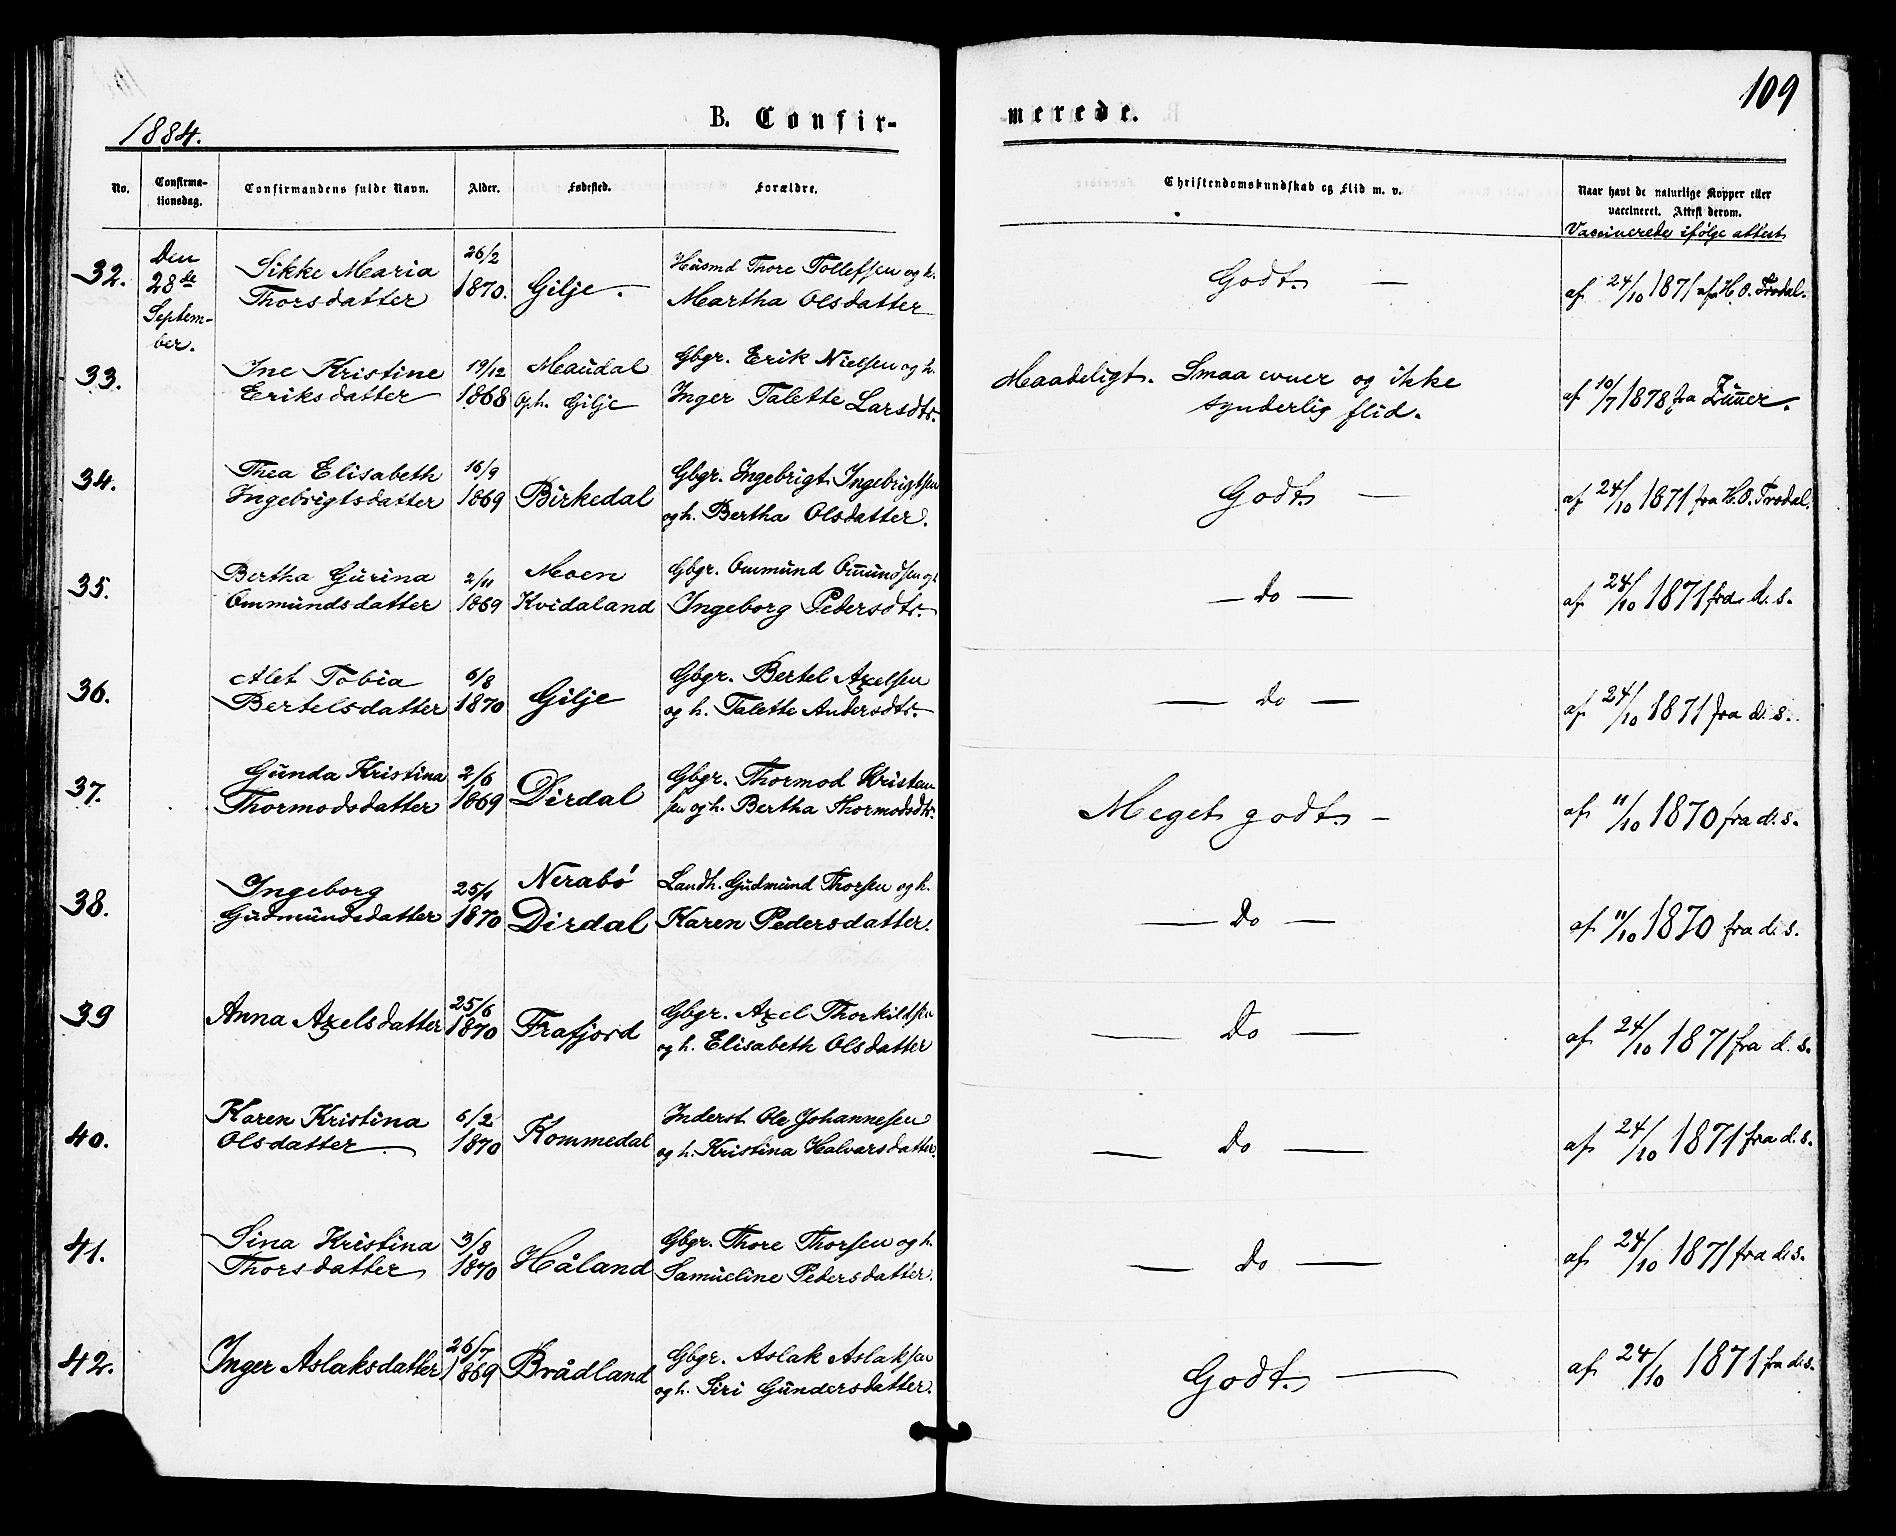 109
1884.
B. Confir-
merede.
No.
Confirma-
tionsdag.
Confirmandens fulde Navn.
Alder.
Fødested.
Forældre.
Christendomskundskab og Flid m. v.
Naar havt de naturlige Kopper eller
vaccineret. Attest derom.
Vaccinerede ifølge attest
32.
Den
28de
Septem-
ber.
Sikke Maria
Thorsdatter
26/2
1870.
Gilje.
Husmd Thore Tollefsen og h.
Martha Olsdatter
Godt. —
af 24/10 1871 af H. O. Trodal.
33.
Ine Kristine
Eriksdatter
19/12
1868
Maudal
Oph. Gilje
Gbgr. Erik Nielsen og h.
Inger Talette Larsdtr.
Maadeligt. Smaa evner og ikke
synderlig flid.
af 10/7 1878 fra Zimer.
34.
Thea Elisabeth
Ingebrigtsdatter
16/9
1869
Birkedal
Gbgr. Ingebrigt Ingebrigtsen
og h. Bertha Olsdatter.
Godt —
af 24/10 1871 fra H. O. Trodal.
35.
Bertha Gurina
Ommundsdatter
2/11
1869
Moen
Kvidaland
Gbgr. Ommund Omundsen og h.
Ingeborg Pedersdtr.
— do —
af 24/10 1871 fra d. s.
36.
Alet Tobia
Bertelsdatter
6/8
1870
Gilje
Gbgr. Bertel Axelsen
og h. Talette Andersdtr.
— do —
af 24/10 1871 fra d. s.
37.
Gunda Kristina
Thormodsdatter
2/6
1869
Dirdal
Gbgr. Thormod Kristen
sen og h. Bertha Thormodsdtr.
Meget godt —
af 11/10 1870 fra d. s.
38.
Ingeborg
Gudmundsdatter
25/1
1870
Nerabø
Dirdal
Landh. Gudmund Thorsen og h.
Karen Pedersdatter.
— Do —
af 11/10 1870 fra d. s.
39
Anna Axelsdatter
25/6
1870
Frafjord
Gbgr. Axel Thorkildsen
og h. Elisabeth Olsdatter
— Do —
af 24/10 1871 fra d. s.
40.
Karen Kristina
Olsdatter
6/2
1870
Kommedal
Inderst Ole Johannesen
og h. Kristina Halvarsdatter.
— Do —
af 24/10 1871 fra d. s.
41.
Sina Kristina
Thorsdatter
3/8
1870
Håland
Gbgr. Thore Thorsen og h.
Samueline Pedersdatter.
— do —
af 24/10 1871 fra d. s.
42.
Inger Aslaksdatter
26/7
1869
Brådland
Gbgr. Aslak Aslaksen
og h. Siri Gundersdatter.
Godt. —
af 24/10 1871 fra d. s.